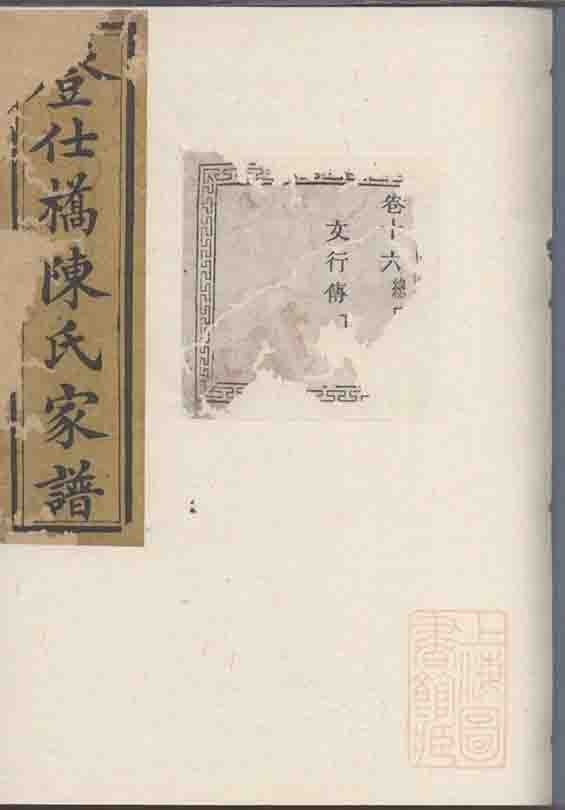 登仕橋陳氏家譜
卷十六
總
文行傳
上海圖書館藏